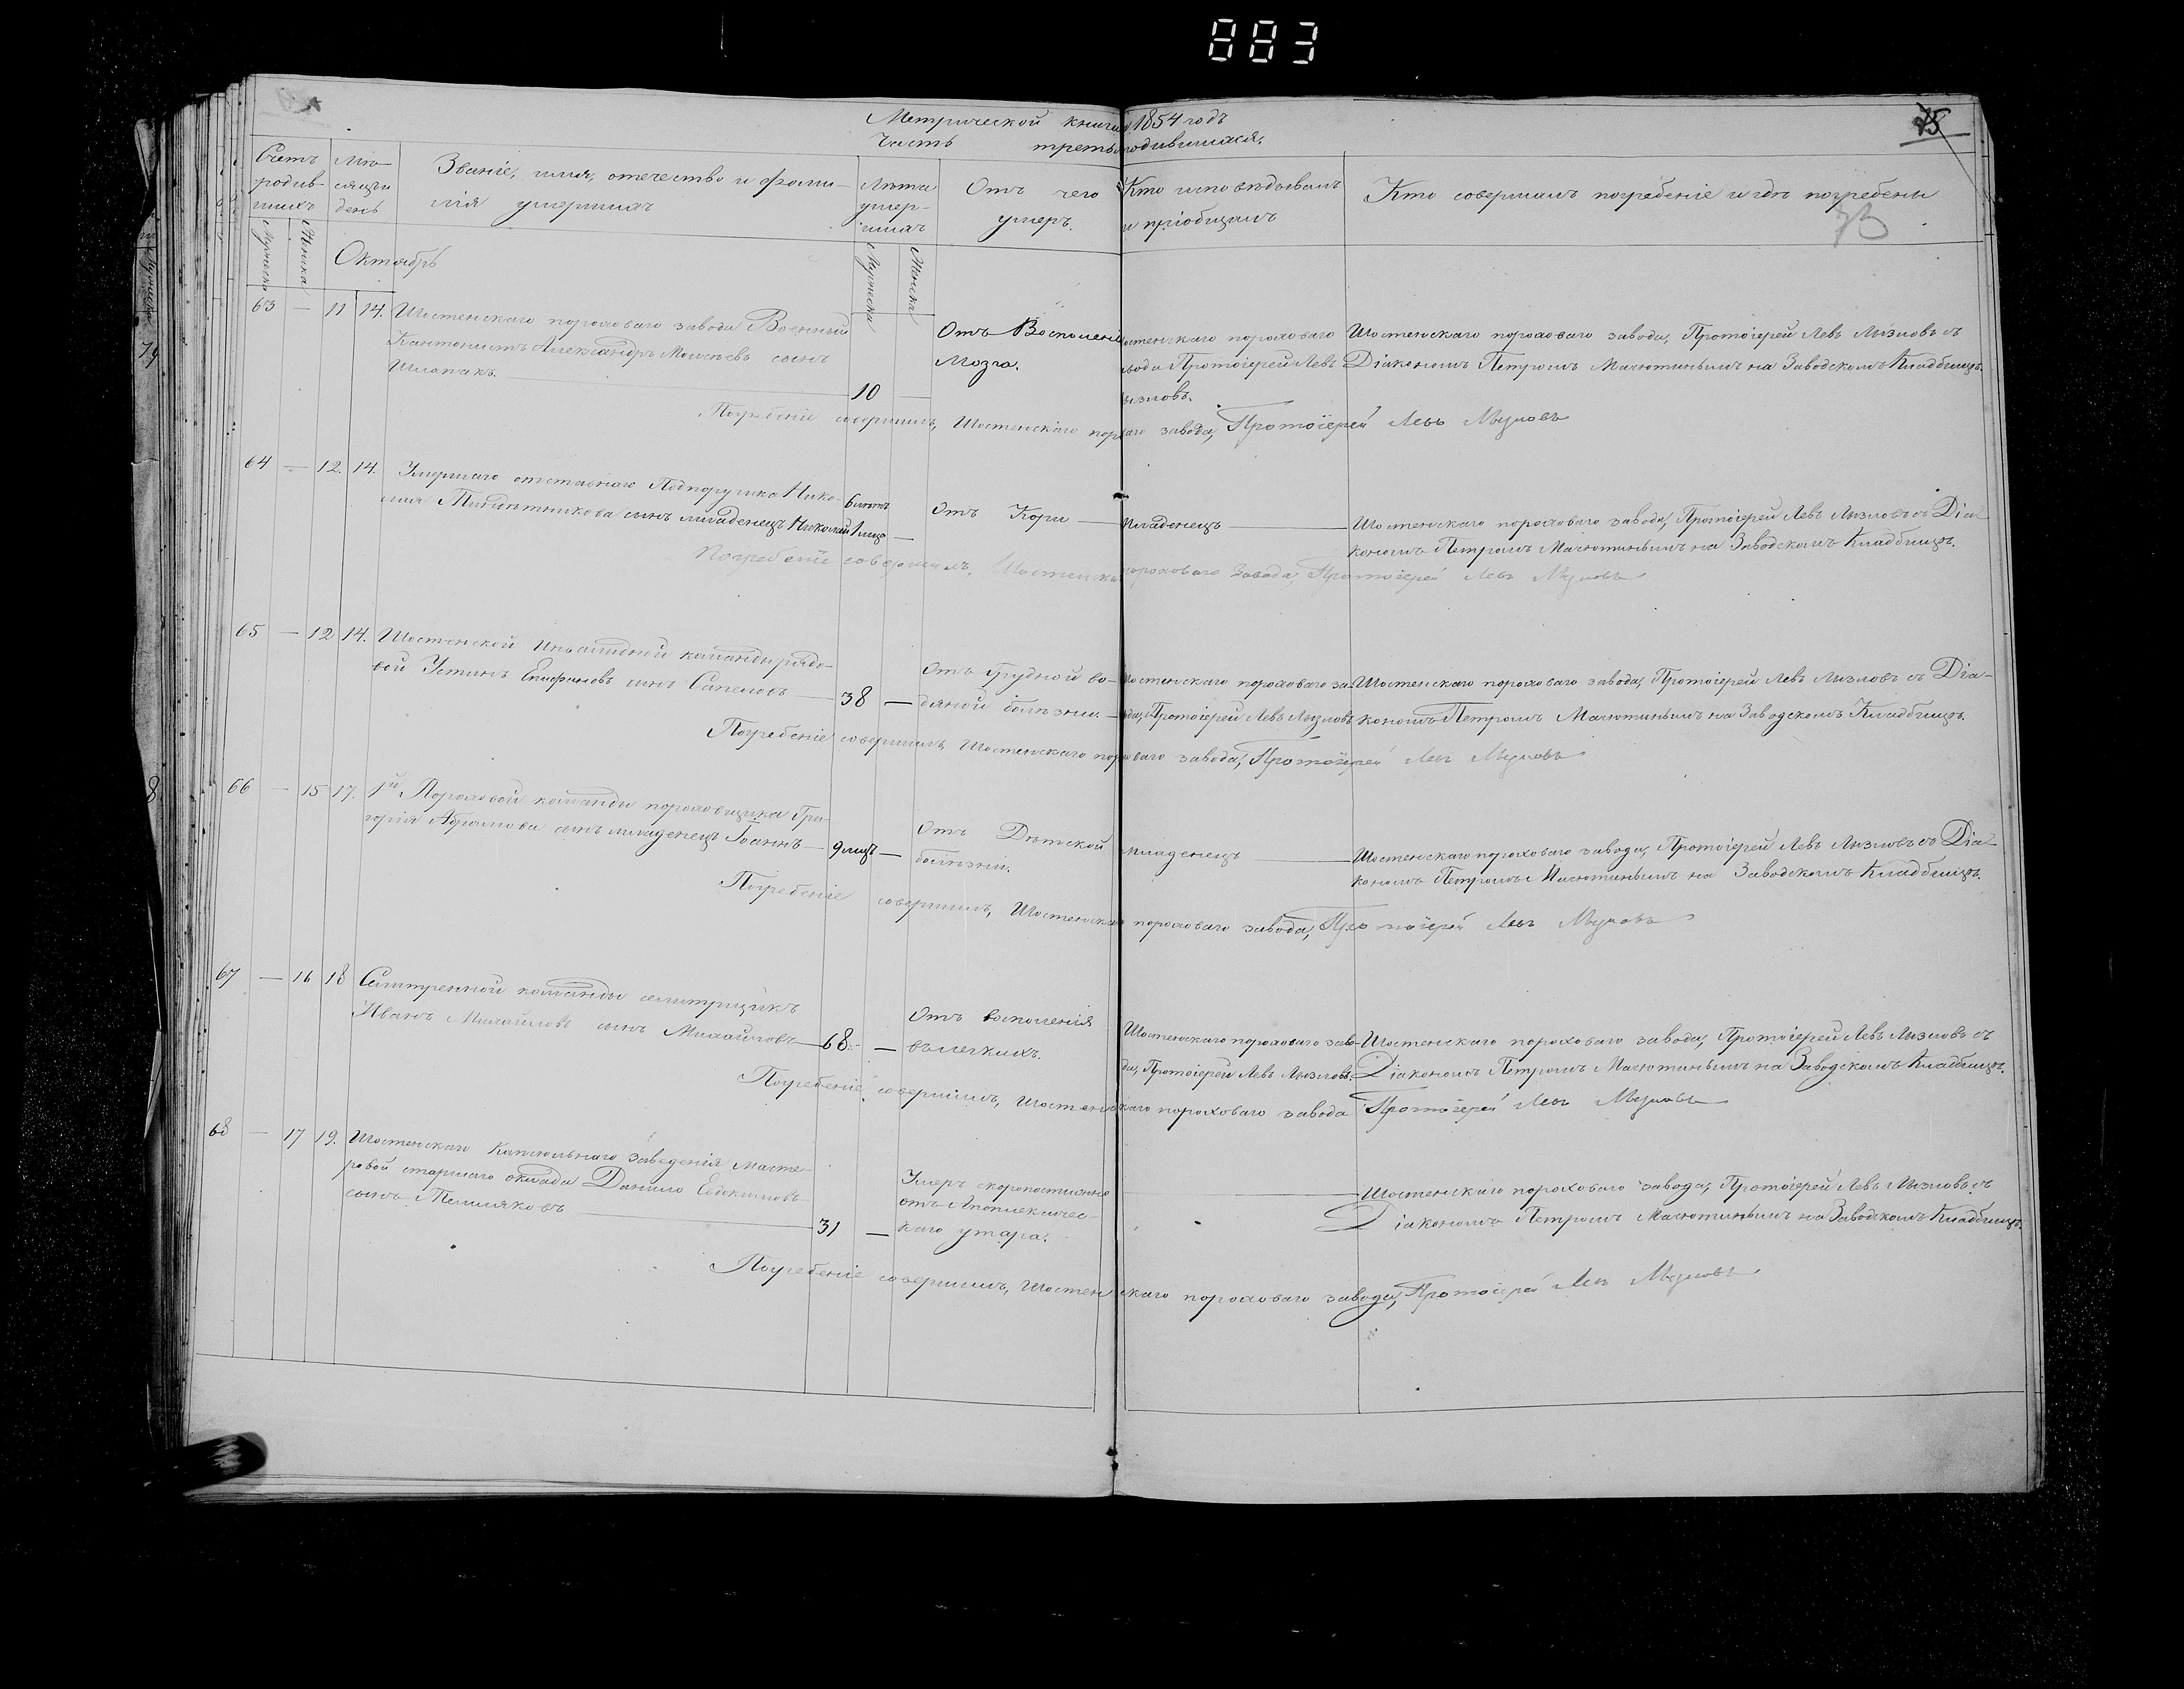 883
75
Метрической книги 1854 годъ
Часть третья
Счетъ родившихъ
Мужеска
Женска
Месяцъ и день
Званіе, имя, отечество и фамилія умершихъ
Лѣта умершихъ
Мужеска
Женска
Отъ чего умеръ.
Кто исповѣдывалъ и пріобщалъ
Кто совершалъ погребеніе и гдѣ погребены
Октябрь
63 — 11 14. Шостенскаго пороховаго завода Военный
Кантонистъ Александръ Моисѣевъ сынъ
Шлапакъ.
10 —
Отъ Воспаленія
Мозга.
Шостенскаго пороховаго
завода Протоіерей Левъ
Мызловъ.
Шостенскаго пороховаго завода, Протоіерей Левъ Мызловъ съ
Діакономъ Петромъ Малютинымъ на Заводскомъ Кладбищѣ.
Погребеніе совершилъ, Шостенскаго пороховаго завода, Протоіерей Левъ Мызловъ
64 — 12. 14. Умершаго отставнаго Подпоручика Нико-
лая сынъ младенецъ Николай
6 лѣтъ
1 мцъ —
Отъ Кори —
младенецъ
Шостенскаго пороховаго завода, Протоіерей Левъ Мызловъ съ Діа-
кономъ Петромъ Малютинымъ на Заводскомъ Кладбищѣ.
Погребеніе совершилъ, Шостенскаго пороховаго завода, Протоіерей Левъ Мызловъ
65 — 12 14. Шостенской Инвалидной команды рядо-
вой Устинъ Епифановъ сынъ Сапеловъ
38 —
Отъ Грудной во-
дяной болѣзни.
Шостенскаго пороховаго за-
вода, Протоіерей Левъ Мызловъ
Шостенскаго пороховаго завода, Протоіерей Левъ Мызловъ съ Діа-
кономъ Петромъ Малютинымъ на Заводскомъ Кладбищѣ.
Погребеніе совершилъ, Шостенскаго пороховаго завода, Протоіерей Левъ Мызловъ
66 — 15 17. 1й. Пороховой команды пороховщика Гри-
горія Абрамова сынъ младенецъ Іоаннъ
9 мцъ —
Отъ Дѣтской
болѣзни.
младенецъ
Шостенскаго пороховаго завода, Протоіерей Левъ Мызловъ съ Діа-
кономъ Петромъ Малютинымъ на Заводскомъ Кладбищѣ.
Погребеніе совершилъ, Шостенскаго пороховаго завода, Протоіерей Левъ Мызловъ
67 — 16 18 Селитренной команды селитрщикъ
Иванъ Михайловъ сынъ Михайловъ
68 —
Отъ воспаленія
въ легкихъ.
Шостенскаго пороховаго заво-
да, Протоіерей Левъ Мызловъ.
Шостенскаго пороховаго завода, Протоіерей Левъ Мызловъ съ
Діакономъ Петромъ Малютинымъ на Заводскомъ Кладбищѣ.
Погребеніе совершилъ, Шостенскаго пороховаго завода Протоіерей Левъ Мызловъ
68 — 17 19. Шостенскаго Капсюльнаго заведенія Масте-
ровой старшаго оклада Данило Евдокимовъ
сынъ
31 —
Умеръ скоропостижно
отъ Апоплекичес-
каго удара.
Шостенскаго пороховаго завода, Протоіерей Левъ Мызловъ съ
Діакономъ Петромъ Малютинымъ на Заводскомъ Кладбищѣ.
Погребеніе совершилъ, Шостенскаго пороховаго завода, Протоіерей Левъ Мызловъ